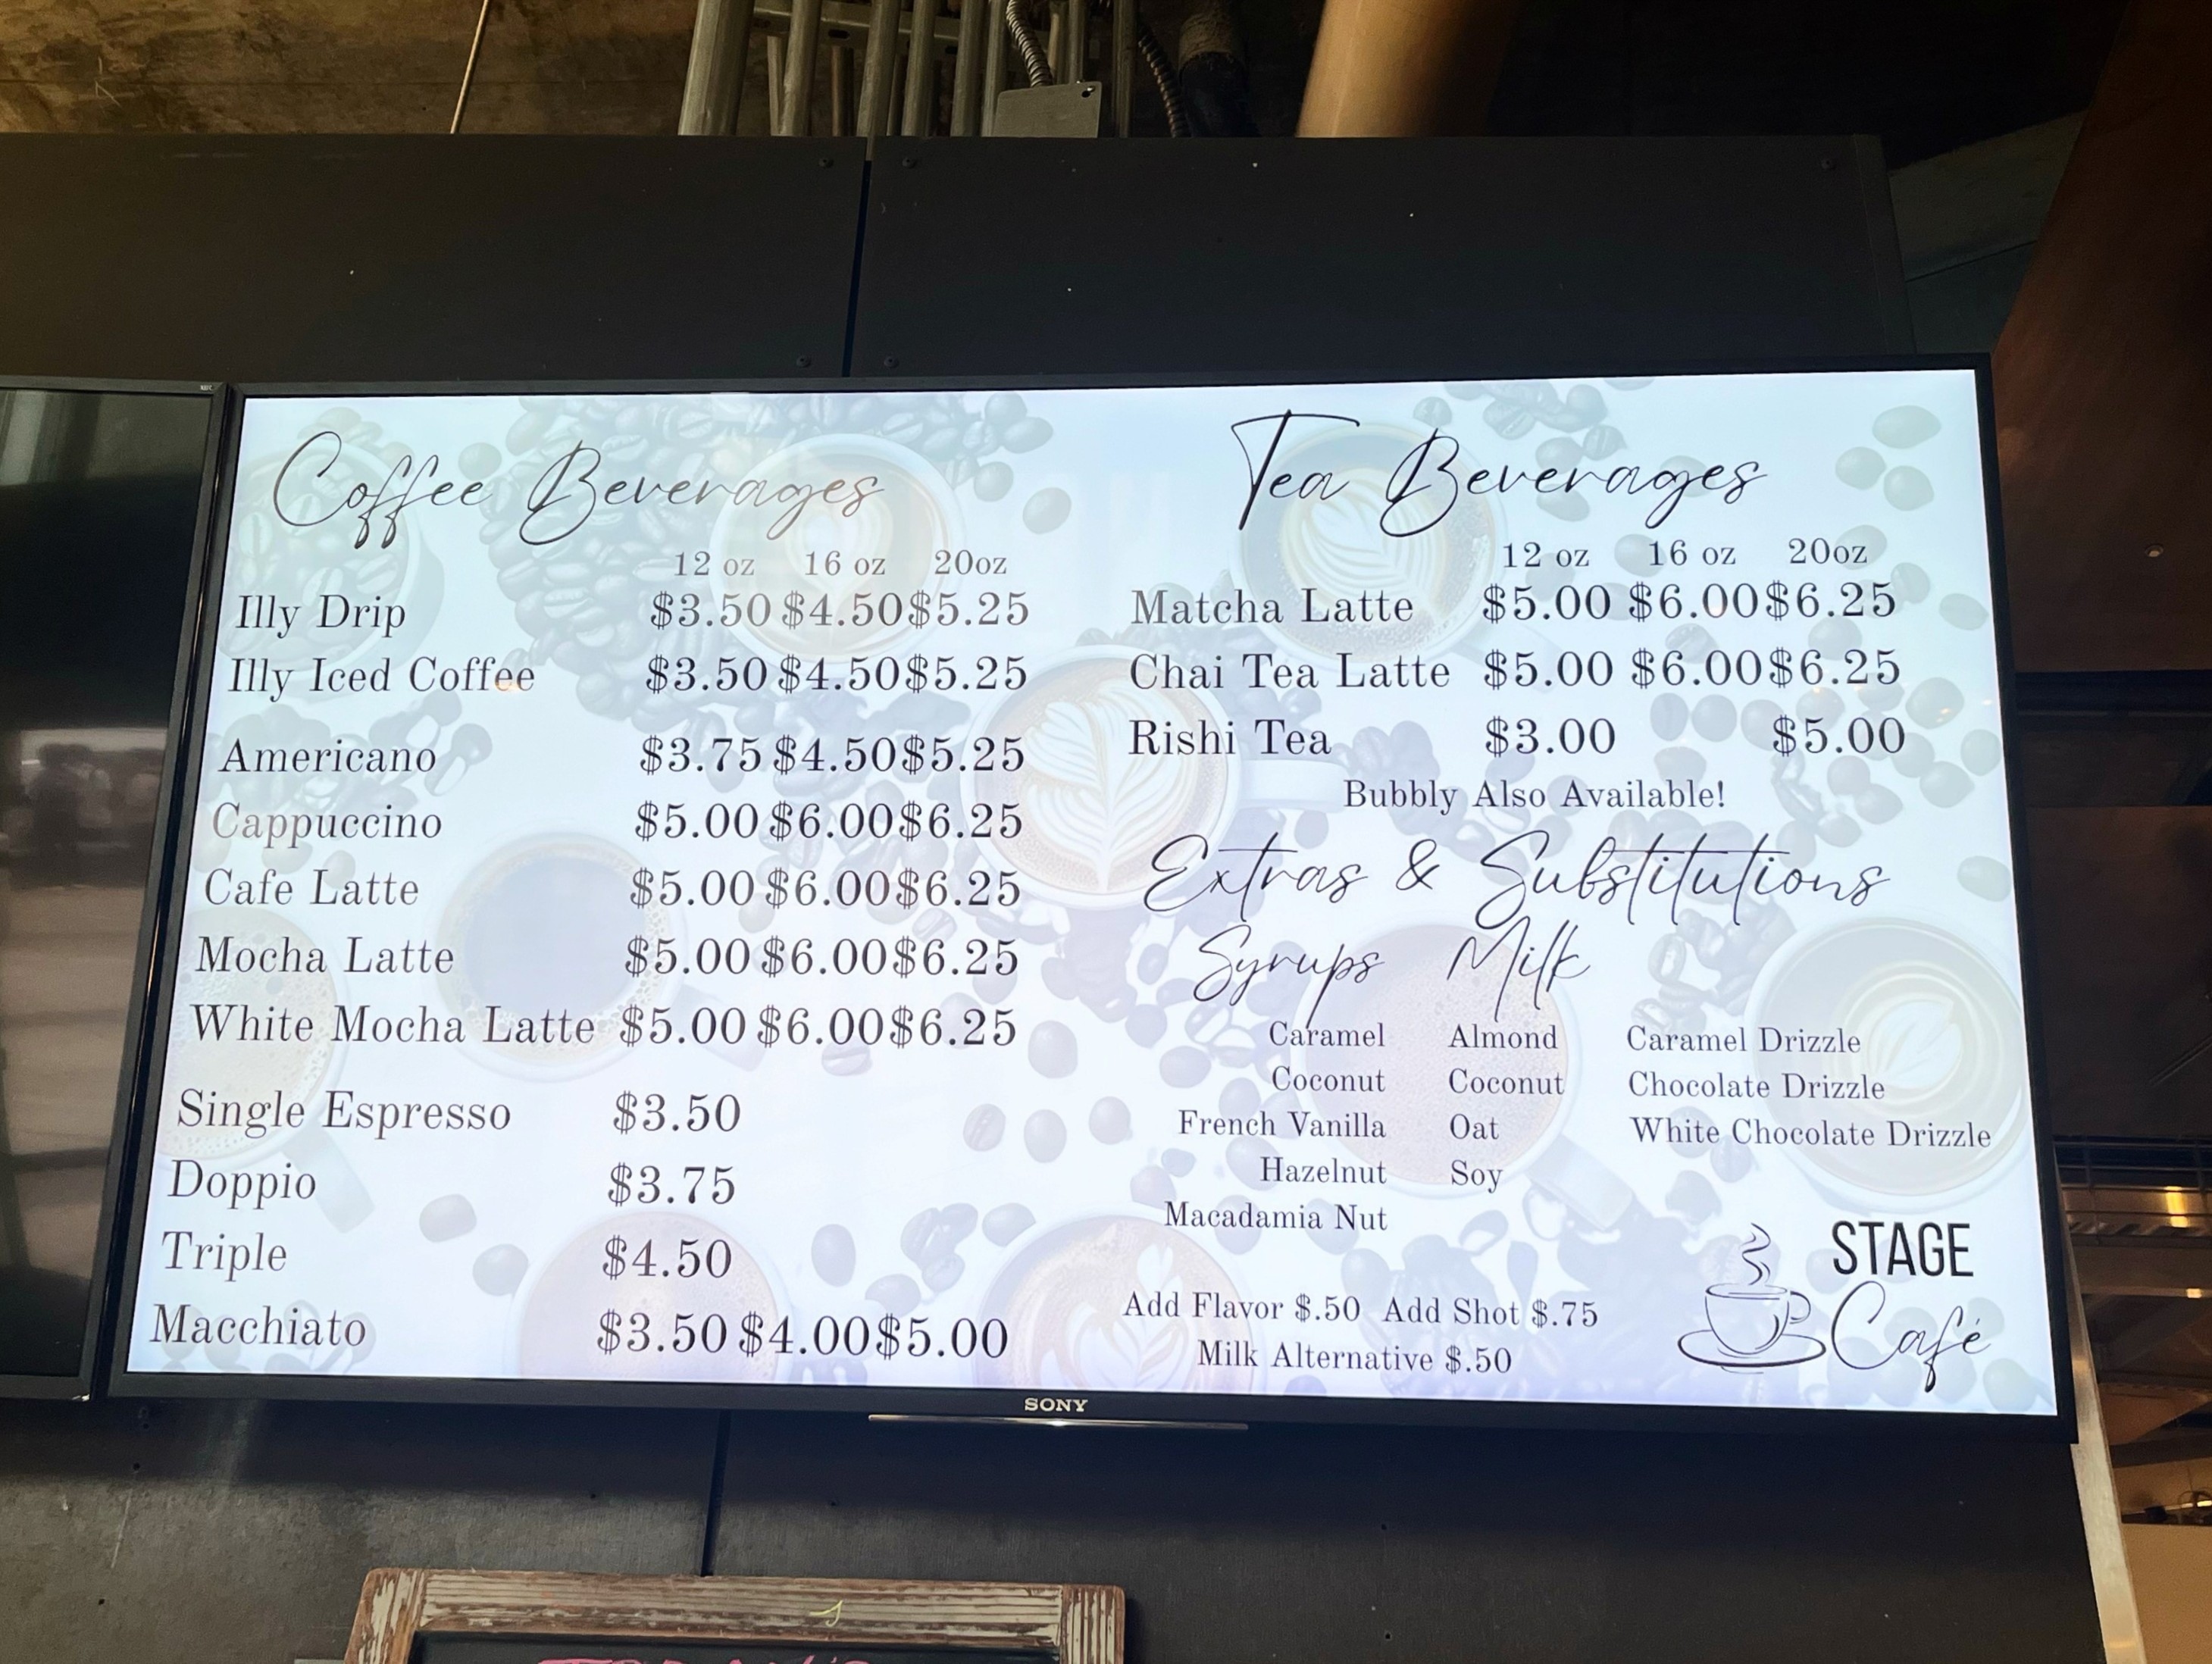 Coffee Beverages
12 oz 16 oz 20oz
Illy Drip $3.50 $4.50 $5.25
Illy Iced Coffee $3.50 $4.50 $5.25
Americano $3.75 $4.50 $5.25
Cappuccino $5.00 $6.00 $6.25
Cafe Latte $5.00 $6.00 $6.25
Mocha Latte $5.00 $6.00 $6.25
White Mocha Latte $5.00 $6.00 $6.25
Single Espresso $3.50
Doppio $3.75
Triple $4.50
Macchiato $3.50 $4.00 $5.00
Tea Beverages
12 oz 16 oz 20oz
Matcha Latte $5.00 $6.00 $6.25
Chai Tea Latte $5.00 $6.00 $6.25
Rishi Tea $3.00 $5.00
Bubbly Also Available!
Extras & Substitutions
Syrups Milk
Caramel Almond Caramel Drizzle
Coconut Coconut Chocolate Drizzle
French Vanilla Oat White Chocolate Drizzle
Hazelnut Soy
Macadamia Nut
Add Flavor $.50 Add Shot $.75
Milk Alternative $.50
STAGE
Café
SONY